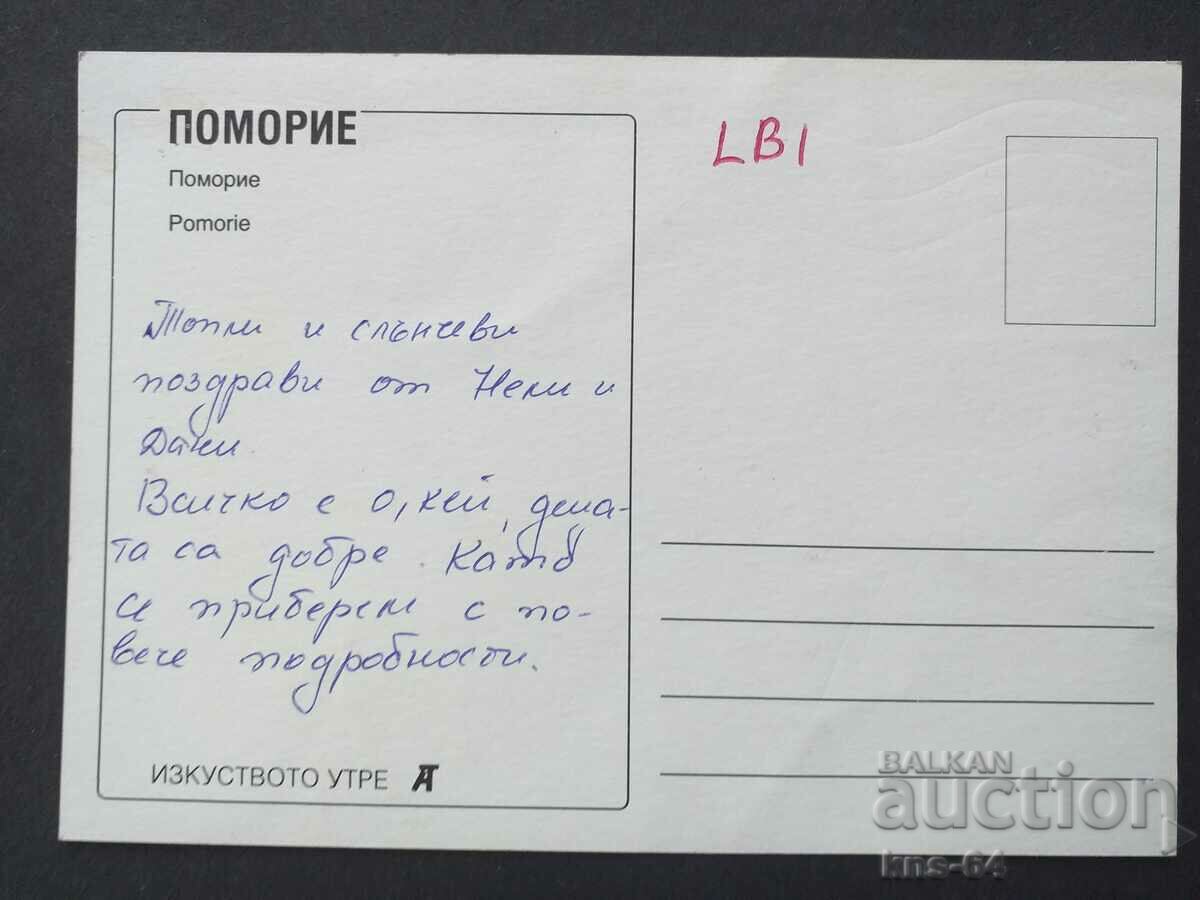 ПОМОРИЕ
Поморие
Pomorie
LB1
Топли и слънчеви
поздрави от Нели и
Дани.
Всичко е о,кей, дела-
та са добре. Като
се приберем с по-
вече подробности.
ИЗКУСТВОТО УТРЕ
BALKAN
auction
kns-64